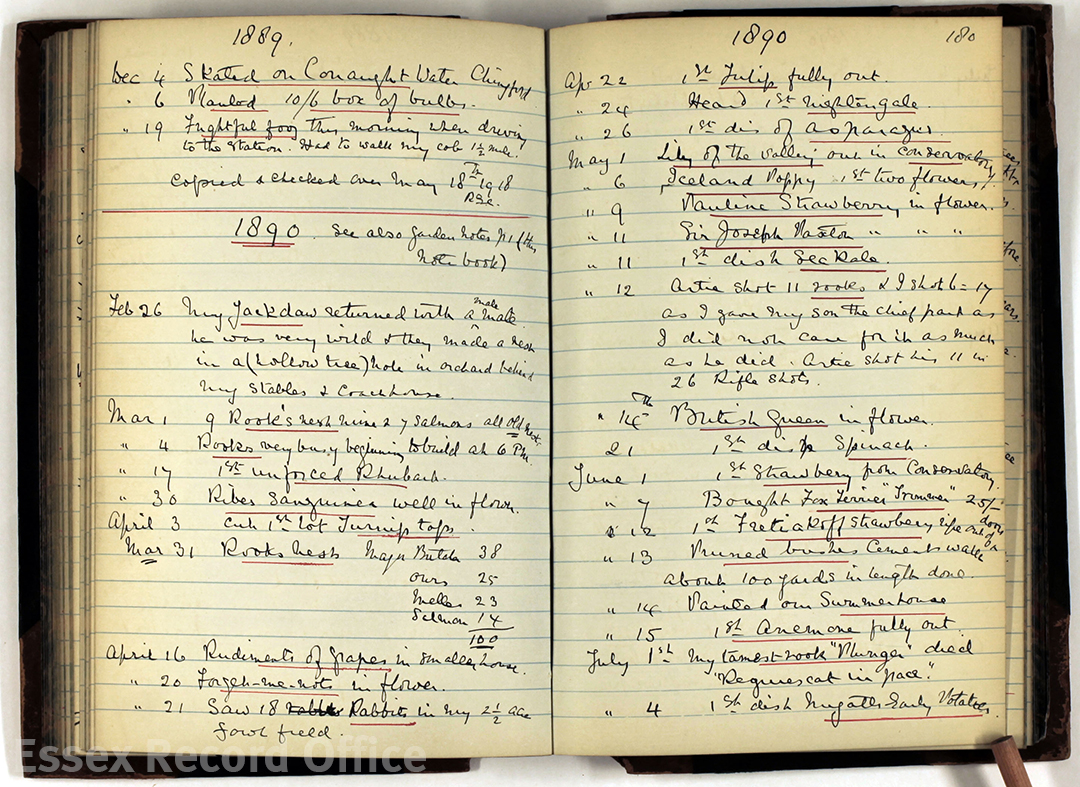 1889.
Dec 4 Skated on Conaught Water Chingford
" 6 Planted 10/6 box of bulbs.
" 19 Frightful fog this morning when driving
to the station. Had to walk my cob 1½ mile.
Copied & checked over May 18th 1918
1890. See also garden notes p1 (this
note book)
Feb 26 My Jackdaw returned with a male mate
he was very wild & they made a nest
in a (hollow tree) hole in orchard behind
my stables & Coachhouse.
Mar 1 9 Rook's nest mine & 7 Salmons all old nest.
" 4 Rooks very busy beginning to build at 6 PM.
" 17 1st unforced Rhubarb.
" 30 Ribes Sanguinea well in flower.
April 3 Cut 1st lot Turnip tops
Mar 31 Rooks Nests Major Butch 38
ours 25
Mellers 23
Salmon 14
100
April 16 Rudiments of grapes in smaller house.
" 20 Forget-me-nots in flower.
" 21 Saw 18 Rabbits in my 2½ acre
fowl field.
Essex Record Office
1890 180
Apr 22 1st Tulip fully out.
" 24 Heard 1st nightengale.
" 26 1st dis of asparagus.
May 1 Lily of the valley out in Conservatory
" 6 Iceland Poppy 1st two flowers.
" 9 Pauline Strawberry in flower.
" 11 Sir Joseph Paxton " " "
" 11 1st dish Sea Kale.
" 12 Artie shot 11 rooks & I shot 6 = 17
as I gave my son the chief part as
I did not care for it as much
as he did. Artie shot his 11 in
26 Rifle shots.
" 14th British Queen in flower.
21 1st dish Spinach.
June 1 1st Strawbery from Conservatory.
" 7 Bought Fox Terrier "Trimmer" 25/-
" 12 1st Fretiakoff strawbery ripe out of doors
" 13 Pruned bushes Cements walk
about 100 yards in length done.
" 14 Painted our Summerhouse
" 15 1st Anemone fully out
July 1st My tamest rook "Plunger" died
"Requiescat in pace".
" 4 1st dish Early Potatoes.